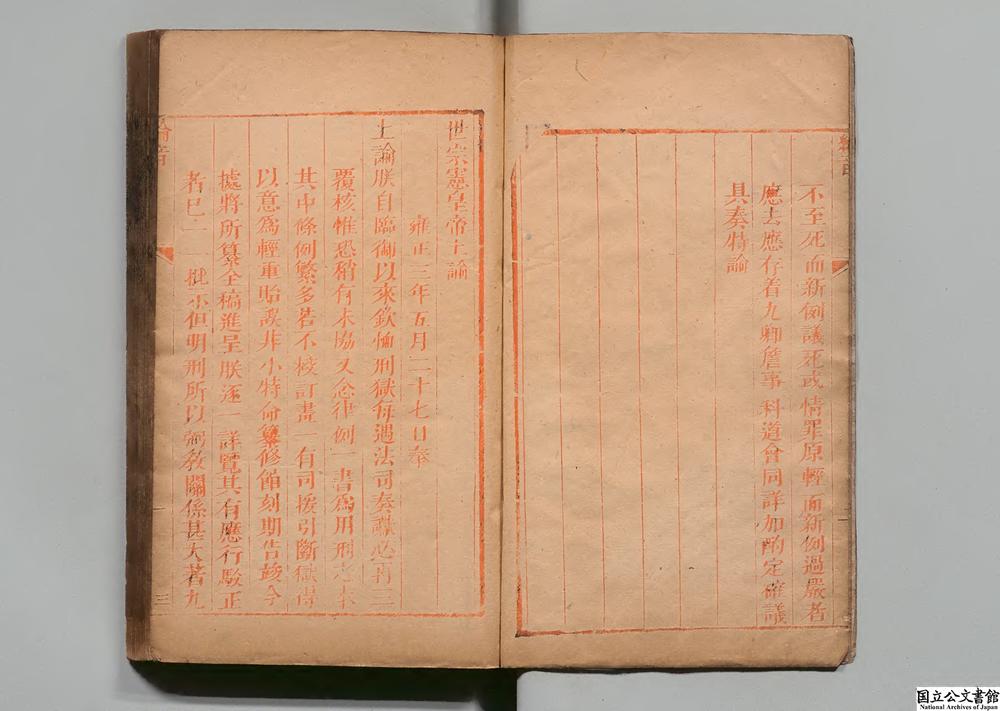 不至死而新例議死或情罪原輕而新例過嚴者
應去應存着九卿詹事科道會同詳加酌定確議
具奏特諭
世宗憲皇帝上諭
雍正三年五月二十七日奉
上諭朕自臨御以來欽恤刑獄每遇法司奏讞必再三
覆核惟恐稍有未協又念律例一書爲用刑之本
其中條例繁多若不校訂畫一有司援引斷獄得
以意爲輕重貽誤非小特命纂修館刻期告竣今
據將所纂全稿進呈朕逐一詳覽其有應行駁正
者已一一批示但明刑所以弼敎關係甚大著九
三
国立公文書館
National Archives of Japan